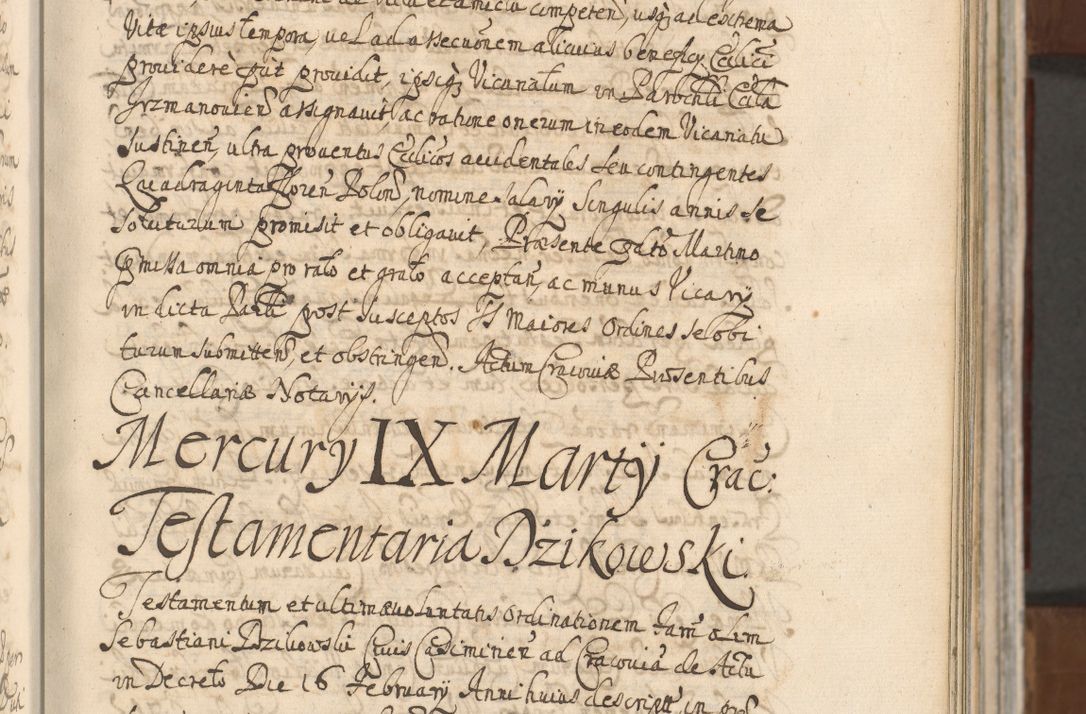 Vitæ ipsius tempora, vel ad assecuõnem alicuius beneficÿ Ecclici
providere ꝓut providit, ipsiq; Vicariatum in Parochli Eccla
Irzmanovien assignavit, ac ratione onerum in eodem Vicariatu
sustinen, ultra proventus Ecclicos accidentales seu contingentes
Quadraginta Floren Polon, nomine salarÿ singulis annis se
soluturum promisit et obligavit, Præsente pdto Martino
præmissa omnia pro rato et grato acceptan, ac munus Vicarÿ
in dicta Parli post susceptos Maiores Ordines se obi
turum submitten, et obstringen. Actum Cracoviæ Præsentibus
Cancellariæ Notarijs.
Mercurÿ IX Martÿ Crac:
Testamentaria Dzikowski.
Testamentum et ultimæ voluntatis ordinationem fam olim
Sebastiani Dzikowski Civis Casimirien ad Cracoviã de Actu
in Decreto Die 16 Februarÿ Anni huius descript in